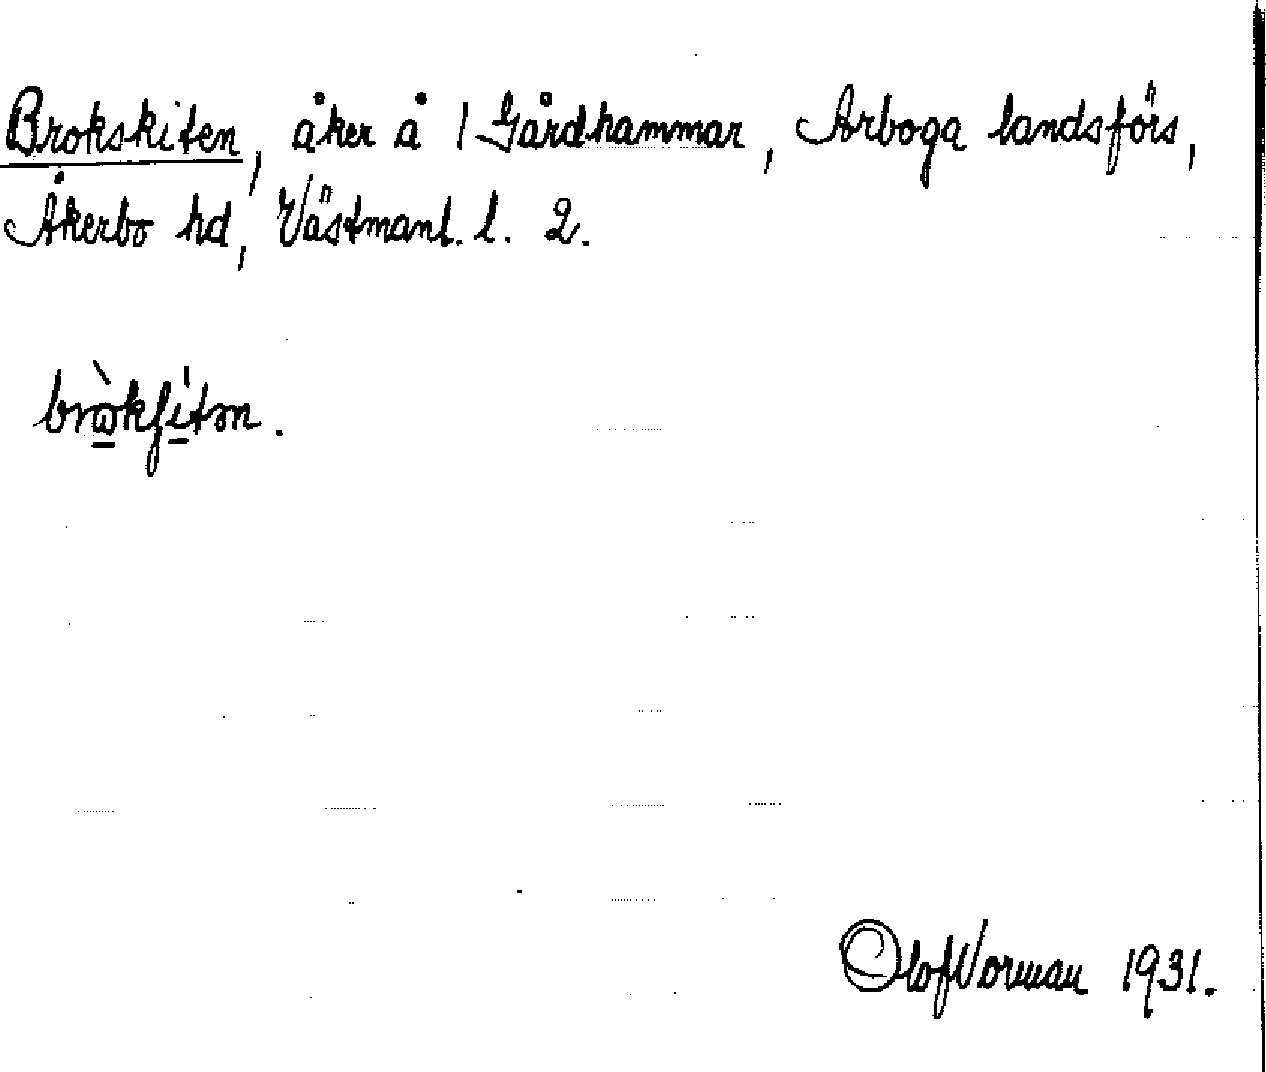 Brokskiten, åker å 1 Gårdhammar, Arboga landsförs,
Åkerbo hd, Västmanl. l. 2.
bròkʃi̍tən.
Olof Norman 1931.